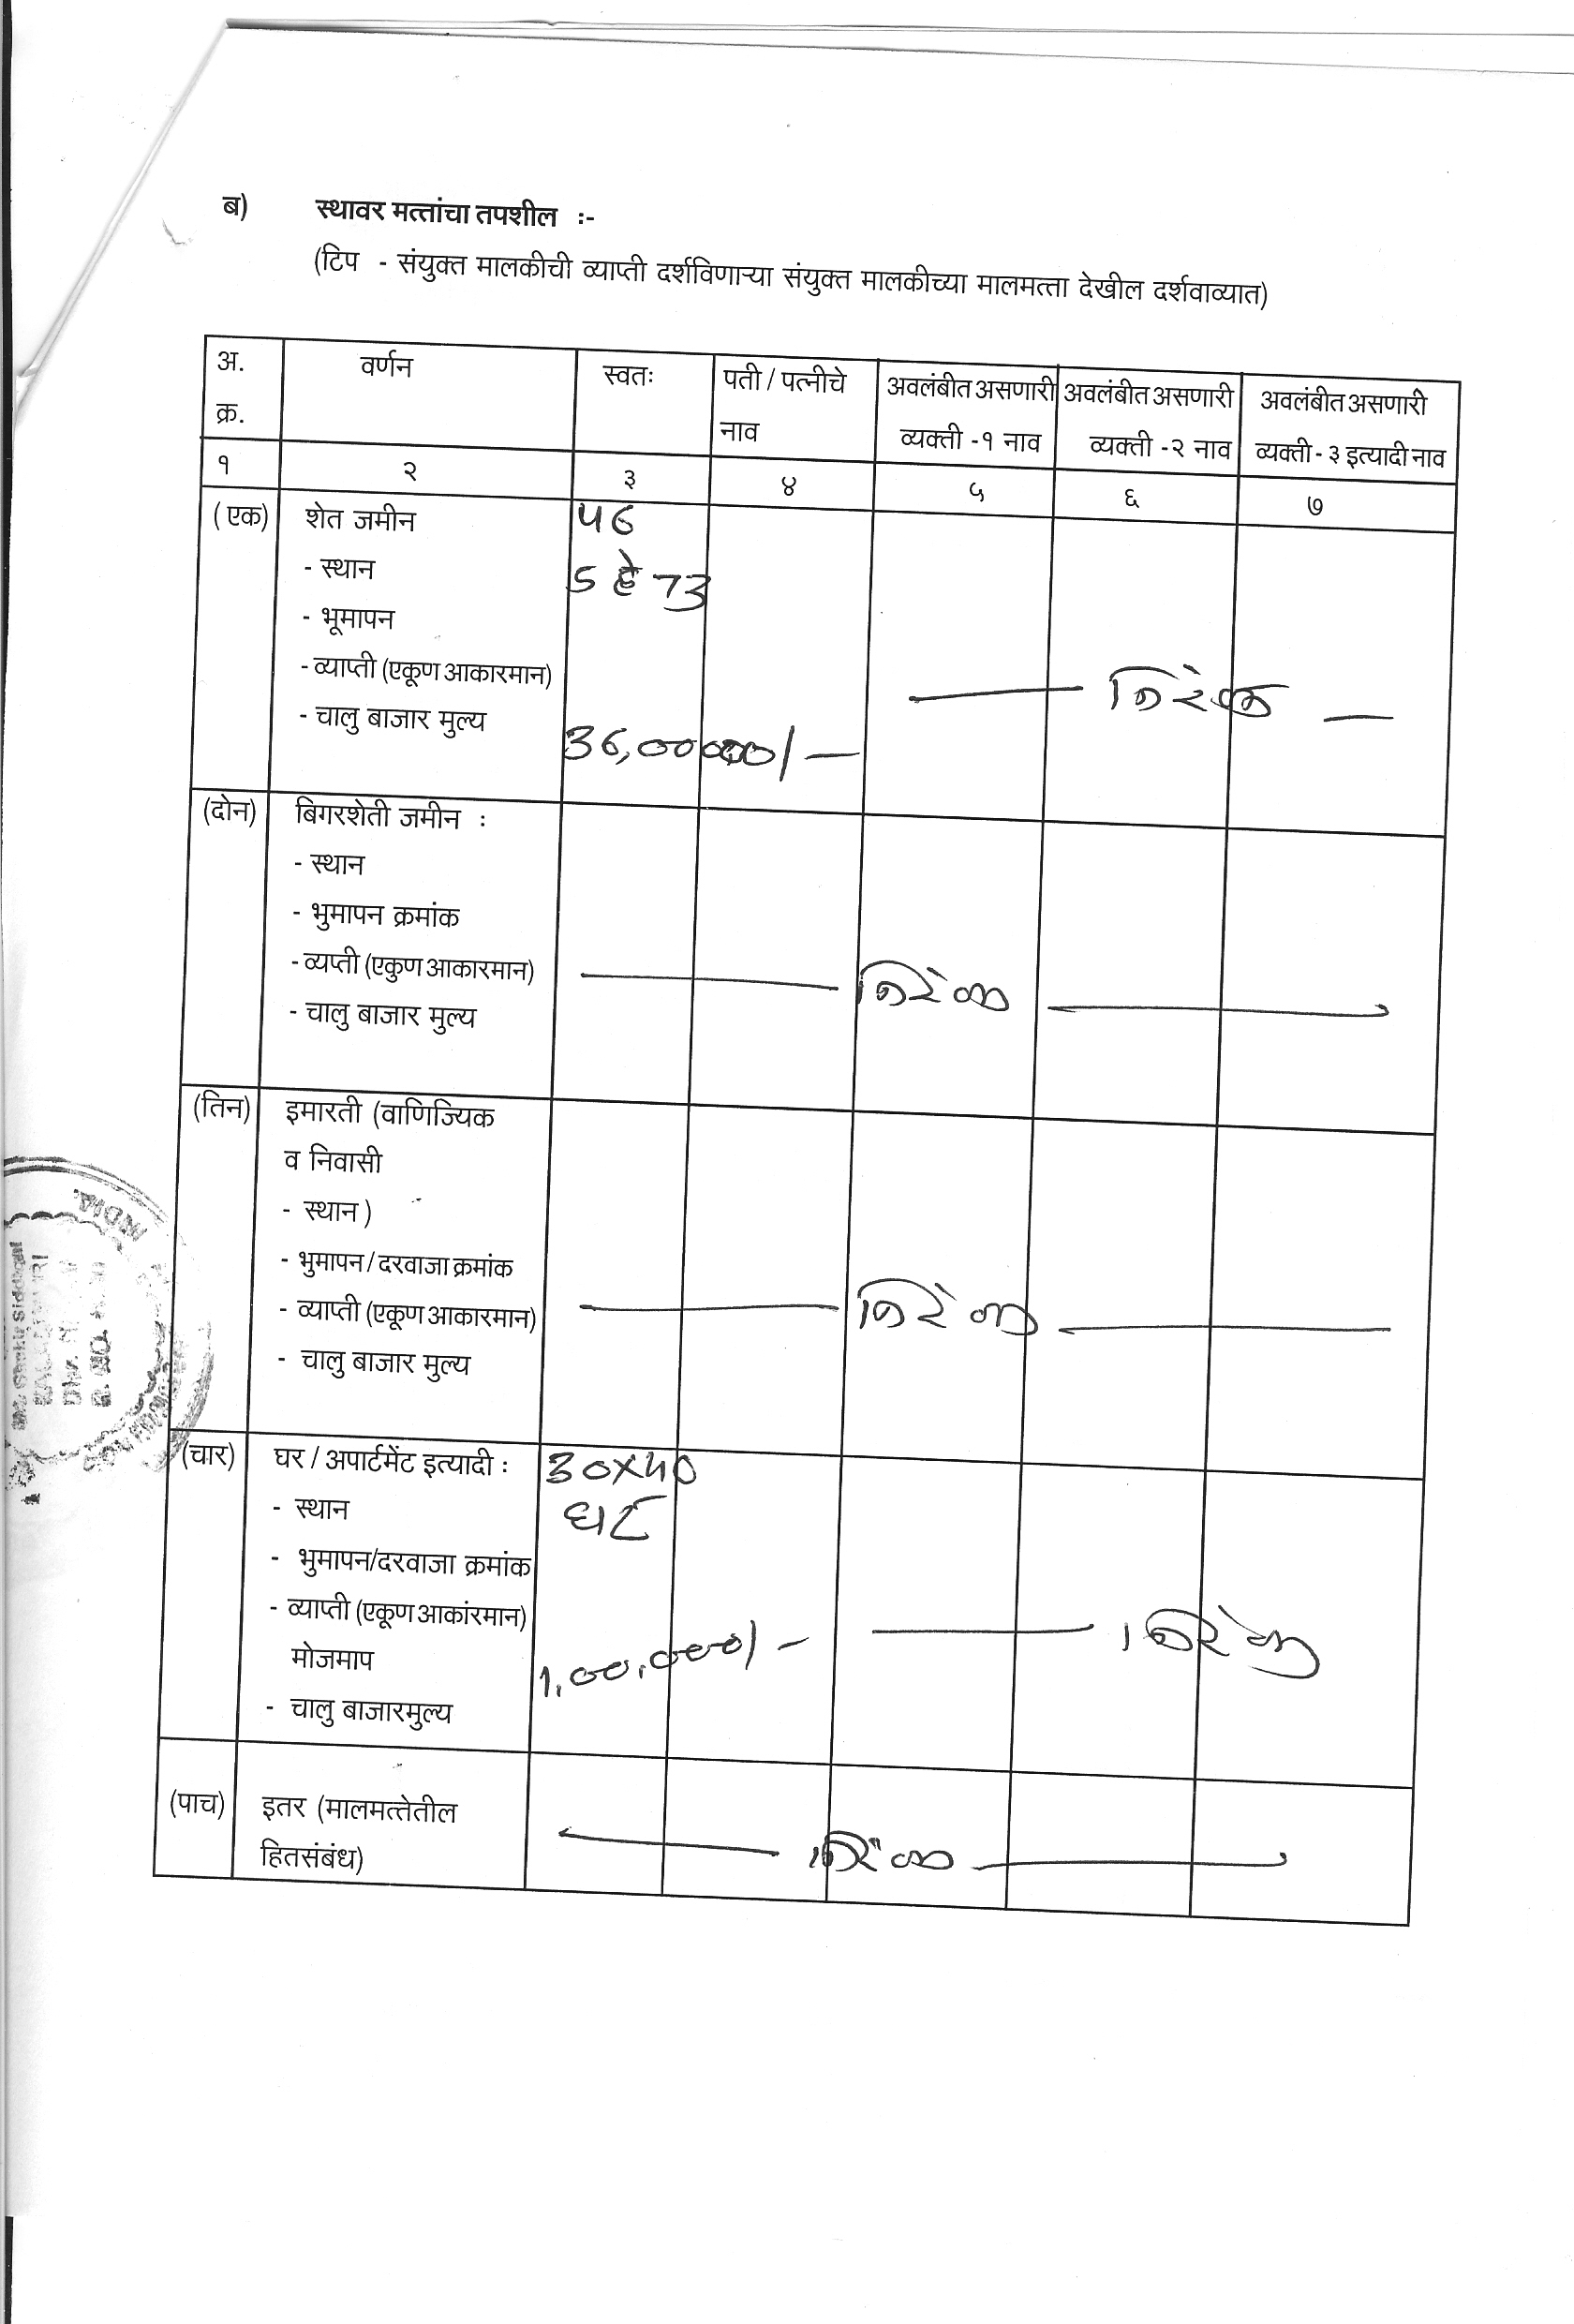 ब) स्थावर मत्तांचा तपशील :-
(टिप - संयुक्त मालकीची व्याप्ती दर्शविणाऱ्या संयुक्त मालकीच्या मालमत्ता देखील दर्शवाव्यात)
अ. क्र. वर्णन स्वतः पती / पत्नीचे नाव अवलंबीत असणारी व्यक्ती -१ नाव अवलंबीत असणारी व्यक्ती -२ नाव अवलंबीत असणारी व्यक्ती - ३ इत्यादी नाव
१ २ ३ ४ ५ ६ ७
(एक) शेत जमीन
- स्थान 5 हे 73
- भूमापन
- व्याप्ती (एकूण आकारमान) निरंक
- चालु बाजार मुल्य 36,00000/-
(दोन) बिगरशेती जमीन :
- स्थान
- भुमापन क्रमांक
- व्यप्ती (एकुण आकारमान) निरंक
- चालु बाजार मुल्य
(तिन) इमारती (वाणिज्यिक
व निवासी
- स्थान )
- भुमापन / दरवाजा क्रमांक
- व्याप्ती (एकूण आकारमान) निरंक
- चालु बाजार मुल्य
(चार) घर / अपार्टमेंट इत्यादी : 30x40
- स्थान घर
- भुमापन/दरवाजा क्रमांक
- व्याप्ती (एकूण आकांरमान) निरंक
मोजमाप 1,00,000/-
- चालु बाजारमुल्य
(पाच) इतर (मालमत्तेतील
हितसंबंध) निरंक